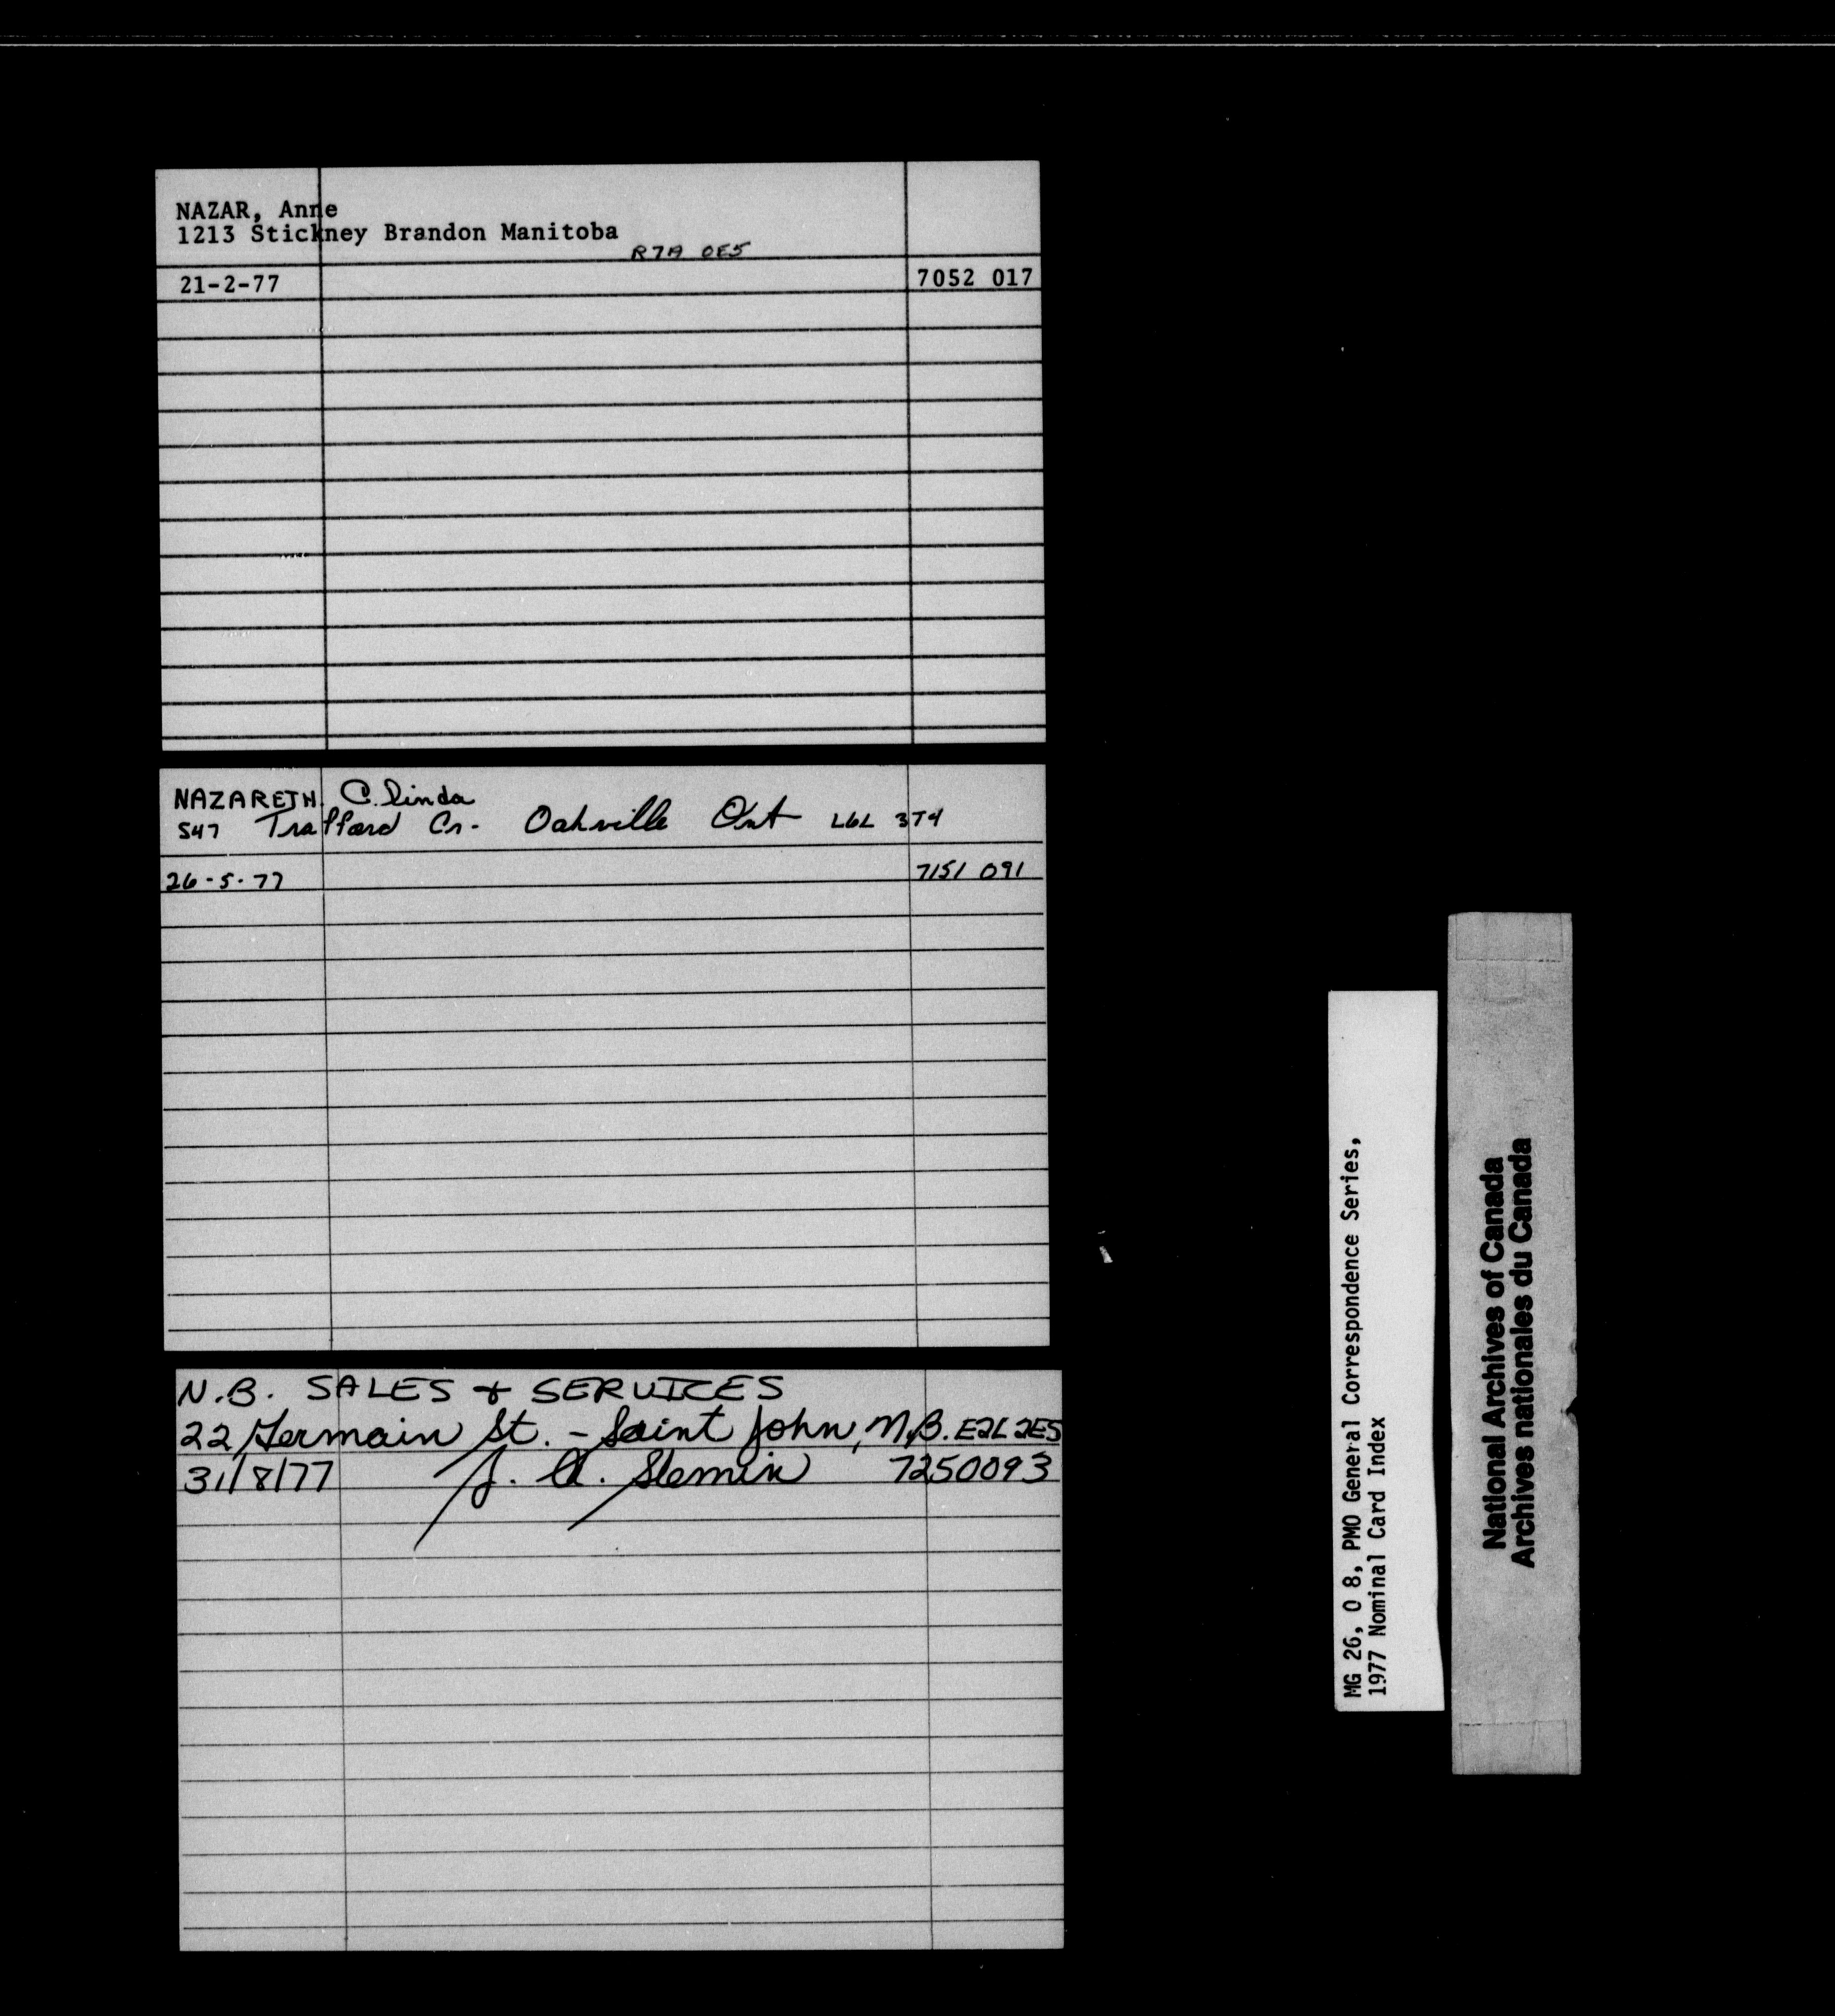 NAZAR, Anne
1213 Stickney Brandon Manitoba
R7A 0E5
21-2-77 7052 017
NAZARETH C. Linda
547 Trafford Cr. Oakville Ont L6L 3T4
26-5-77 7151 091
N.B. SALES & SERVICES
22 Germain St. - Saint John, N.B. E2L 2E5
31/8/77 J. A. Slemin 7250093
MG 26, O 8, PMO General Correspondence Series,
1977 Nominal Card Index
National Archives of Canada
Archives nationales du Canada